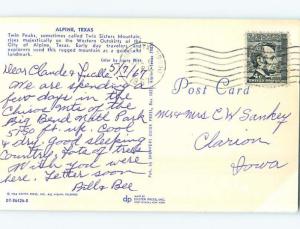 ALPINE, TEXAS
Twin Peaks, sometimes called Twin Sisters Mountain,
rises majestically on the Western Outskirts of the
City of Alpine, Texas. Early day travelers and
explorers used this rugged mountain as a guide and
landmark.
Dear Claude & Lucile
We are spending a
few days in the
Chisos Mts of the
Big Bend Natl Park
5750 ft. up. Cool
& dry, good sleeping
Country, lots of trees
Wish you were
here. Letter soon
Bill & Bee
Post Card
Mr & Mrs C W Sankey
Clarion
Iowa
DEXTER PRESS, INC.